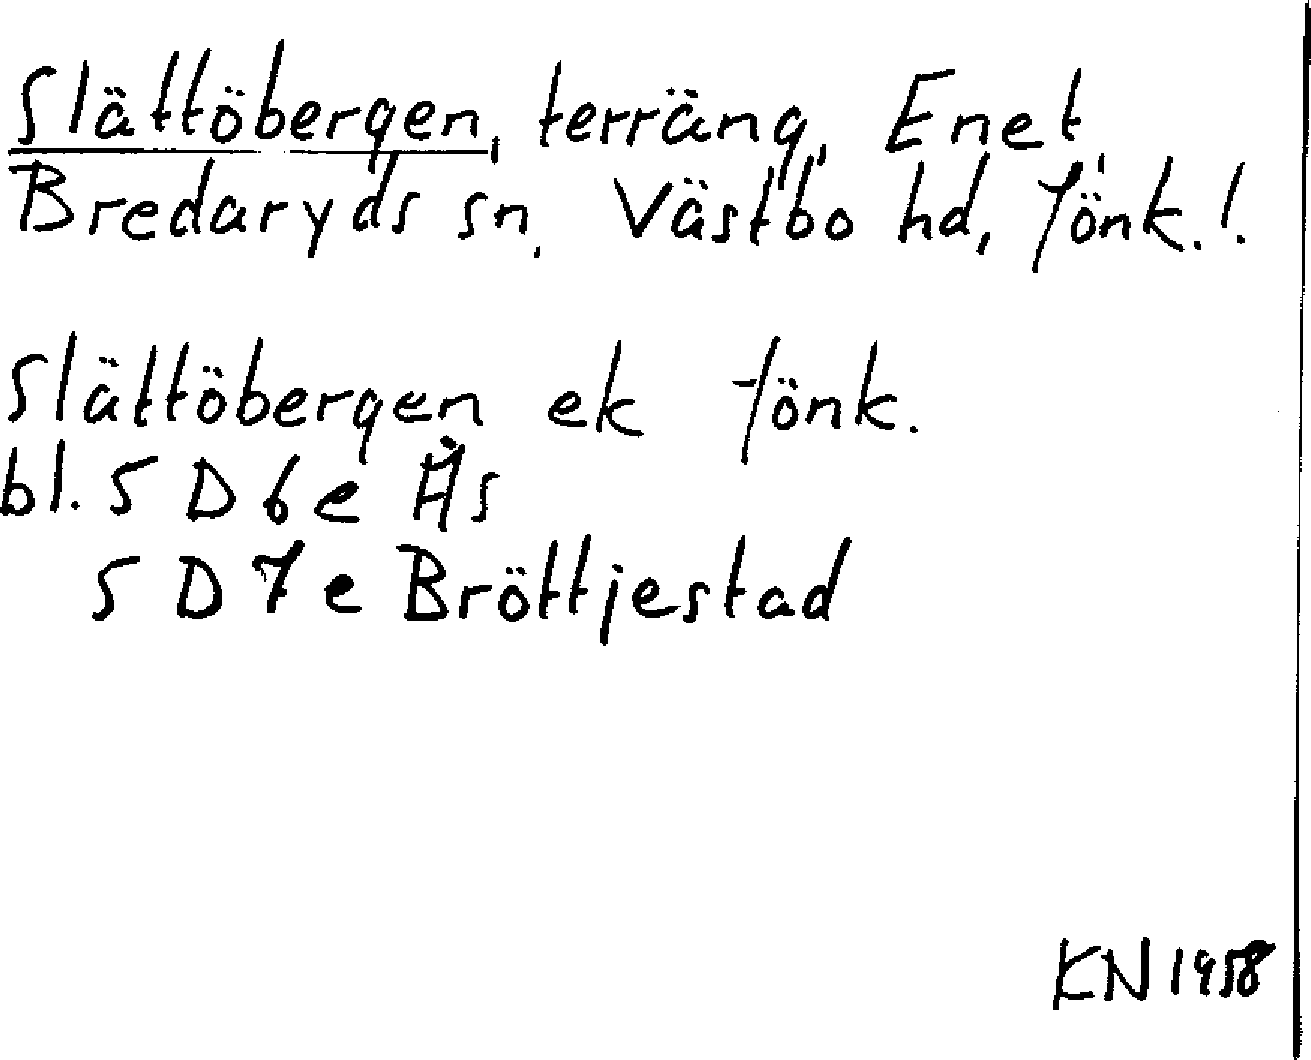 Slättöbergen, terräng, Enet,
Bredaryds sn, Västbo hd, Jönk.!.
Slättöbergen ek Jönk.
bl. 5 D 6 e Ås
5 D 7 e Bröttjestad
KN 1958